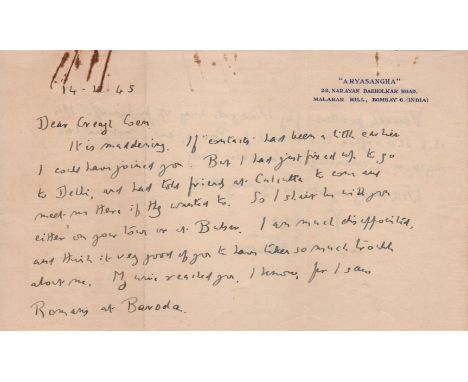 14-12-45
"ARYASANGHA"
22, NARAYAN DABHOLKAR ROAD,
MALABAR HILL, BOMBAY 6. (INDIA)
Dear Creagh Coen
It is maddening. If "contacts" had been a little earlier
I could have joined you! But I had just fixed up to go
to Delhi, and had told friends at Calcutta to come and
meet me there if they wanted to. So I shan't be with you
either on your tour or at Bulsar. I am much disappointed,
and think it very good of you to have taken so much trouble
about me. My wire reached you, I know, for I saw
Romans at Baroda.